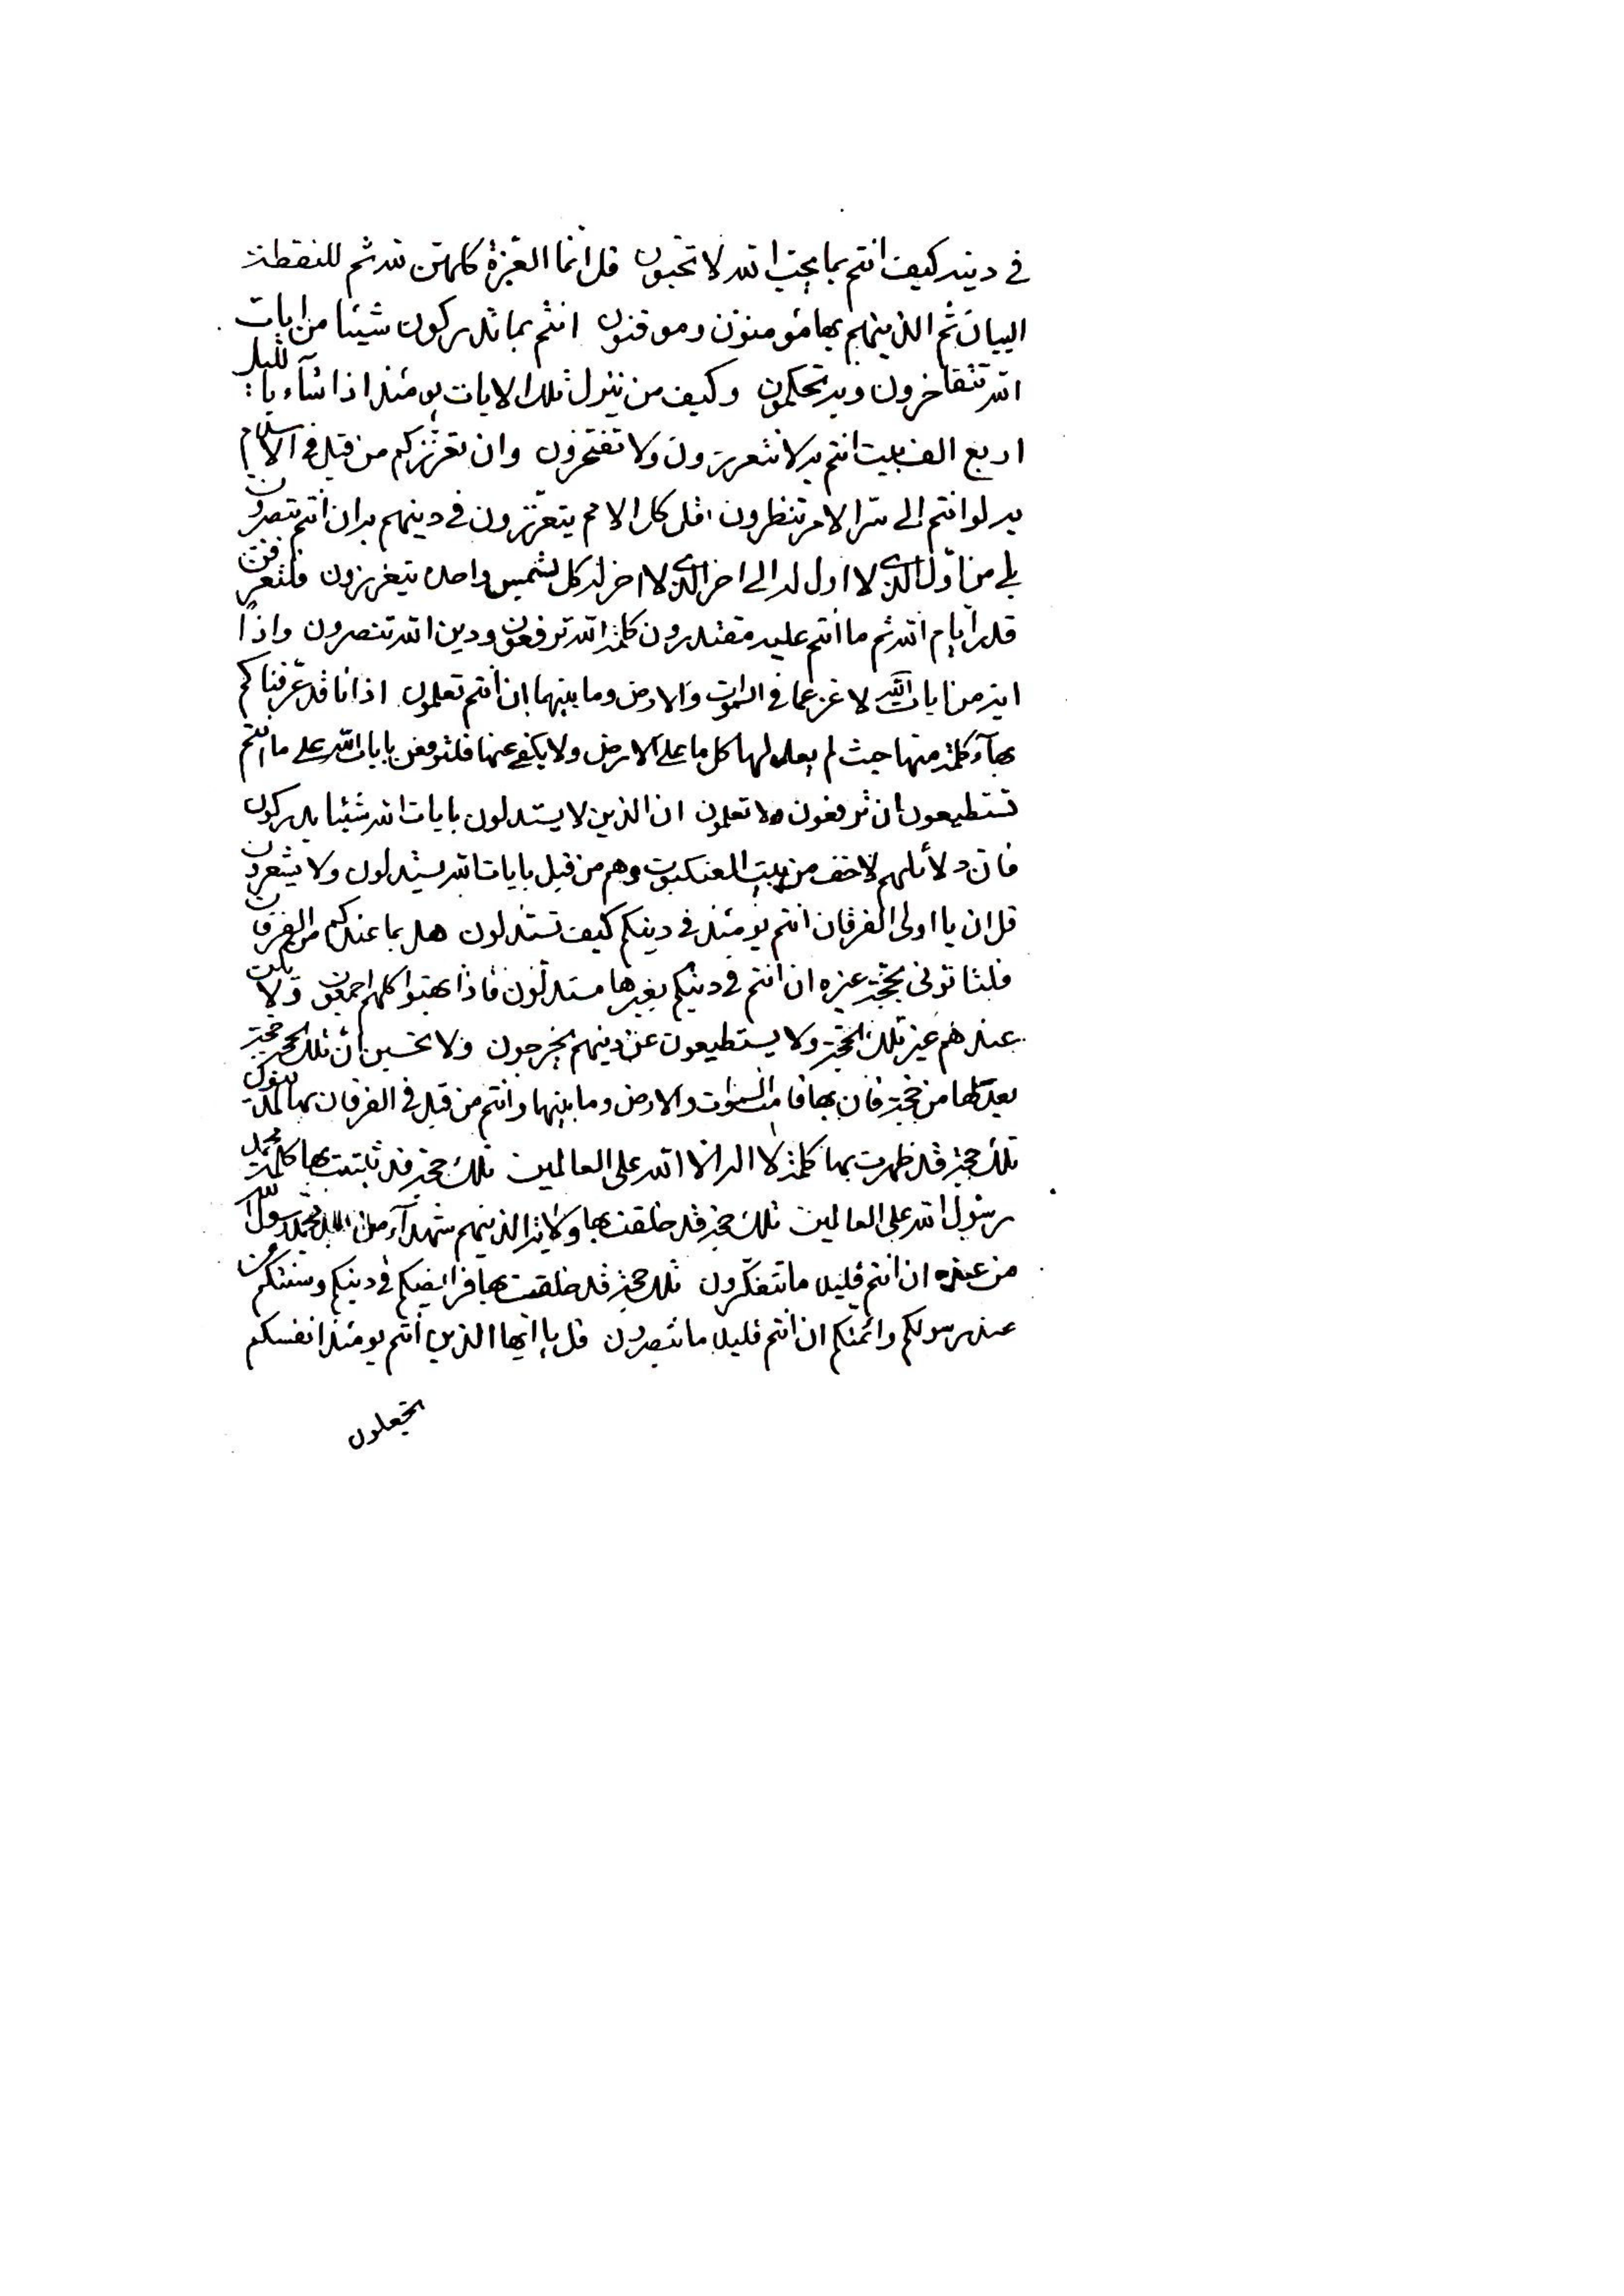 في دينه كيف انتم بما يحب الله لا تحبون قل انما العزة كلهن لله ثم للنقطة
البيان ثم الذينهم بها مؤمنون وموقنون انتم بما تدركون شيئا من ايات
الله تتفاخرون وبه تحكمون وكيف من ينزل تلك الايات يومئذ اذا شاء با لليل
اربع الف بيت انتم به لا تتعززون ولا تفتخرون وان تعززكم من قبل في الاسلام
به لو انتم الى سر الامر تنظرون قل كل الامم يتعززون في دينهم به ان انتم تتصرون
بلى من اول الذي لا اول له الى اخر الذي لا اخر له كل لشمس واحدة يتعززون فلتعرفن
قدر ايام الله ثم ما انتم عليه مقتدرون كلمة الله ترفعون ودين الله تنصرون واذا
اية من ايات الله لاعز عما في السموات والارض وما بينهما ان انتم تعلمون اذ انا قد عرفناكم
بهاء كلمة منها حيث لم يعدلها كل ما على الارض ولا يكفي عنها فلترفعن بايات الله على ما انتم
تستطيعون ان ترفعون ولا تعلمون ان الذين لا يستدلون بايات الله شيئا يدركون
فان دلائلهم لاخف من بيت العنكبوت وهم من قبل بايات الله يستدلون ولا يشعرون
قل ان يا اولى الفرقان انتم يومئذ في دينكم كيف تستدلون هل بما عندكم من الفرقان
فلتاتونى بحجة غيره ان انتم في دينكم بغيرها مستدلون فاذا بهتوا كلهم اجمعون ولا يكن
عندهم غير تلك الحجة ولا يستطيعون عن دينهم يخرجون ولا تحسبن ان تلك الحجة حجة
يعدلها من حجة فان بها قامت السموات والارض وما بينهما وانتم من قبل في الفرقان بها
تلك حجة قد ظهرت بها كلمة لا اله الا الله على العالمين تلك حجة قد ثابتت بها كلمة محمد
رسول الله على العالمين تلك حجة قد خلقت بها ولاية الذينهم شهداء من بعد محمد رسول الله
من عنده ان انتم قليلا ما تتفكرون تلك حجة قد خلقت بها فرايضكم في دينكم وسننكم من
عند رسولكم وائمتكم ان انتم قليلا ما تتصرون قل يا ايها الذين انتم يومئذ انفسكم
تجعلون